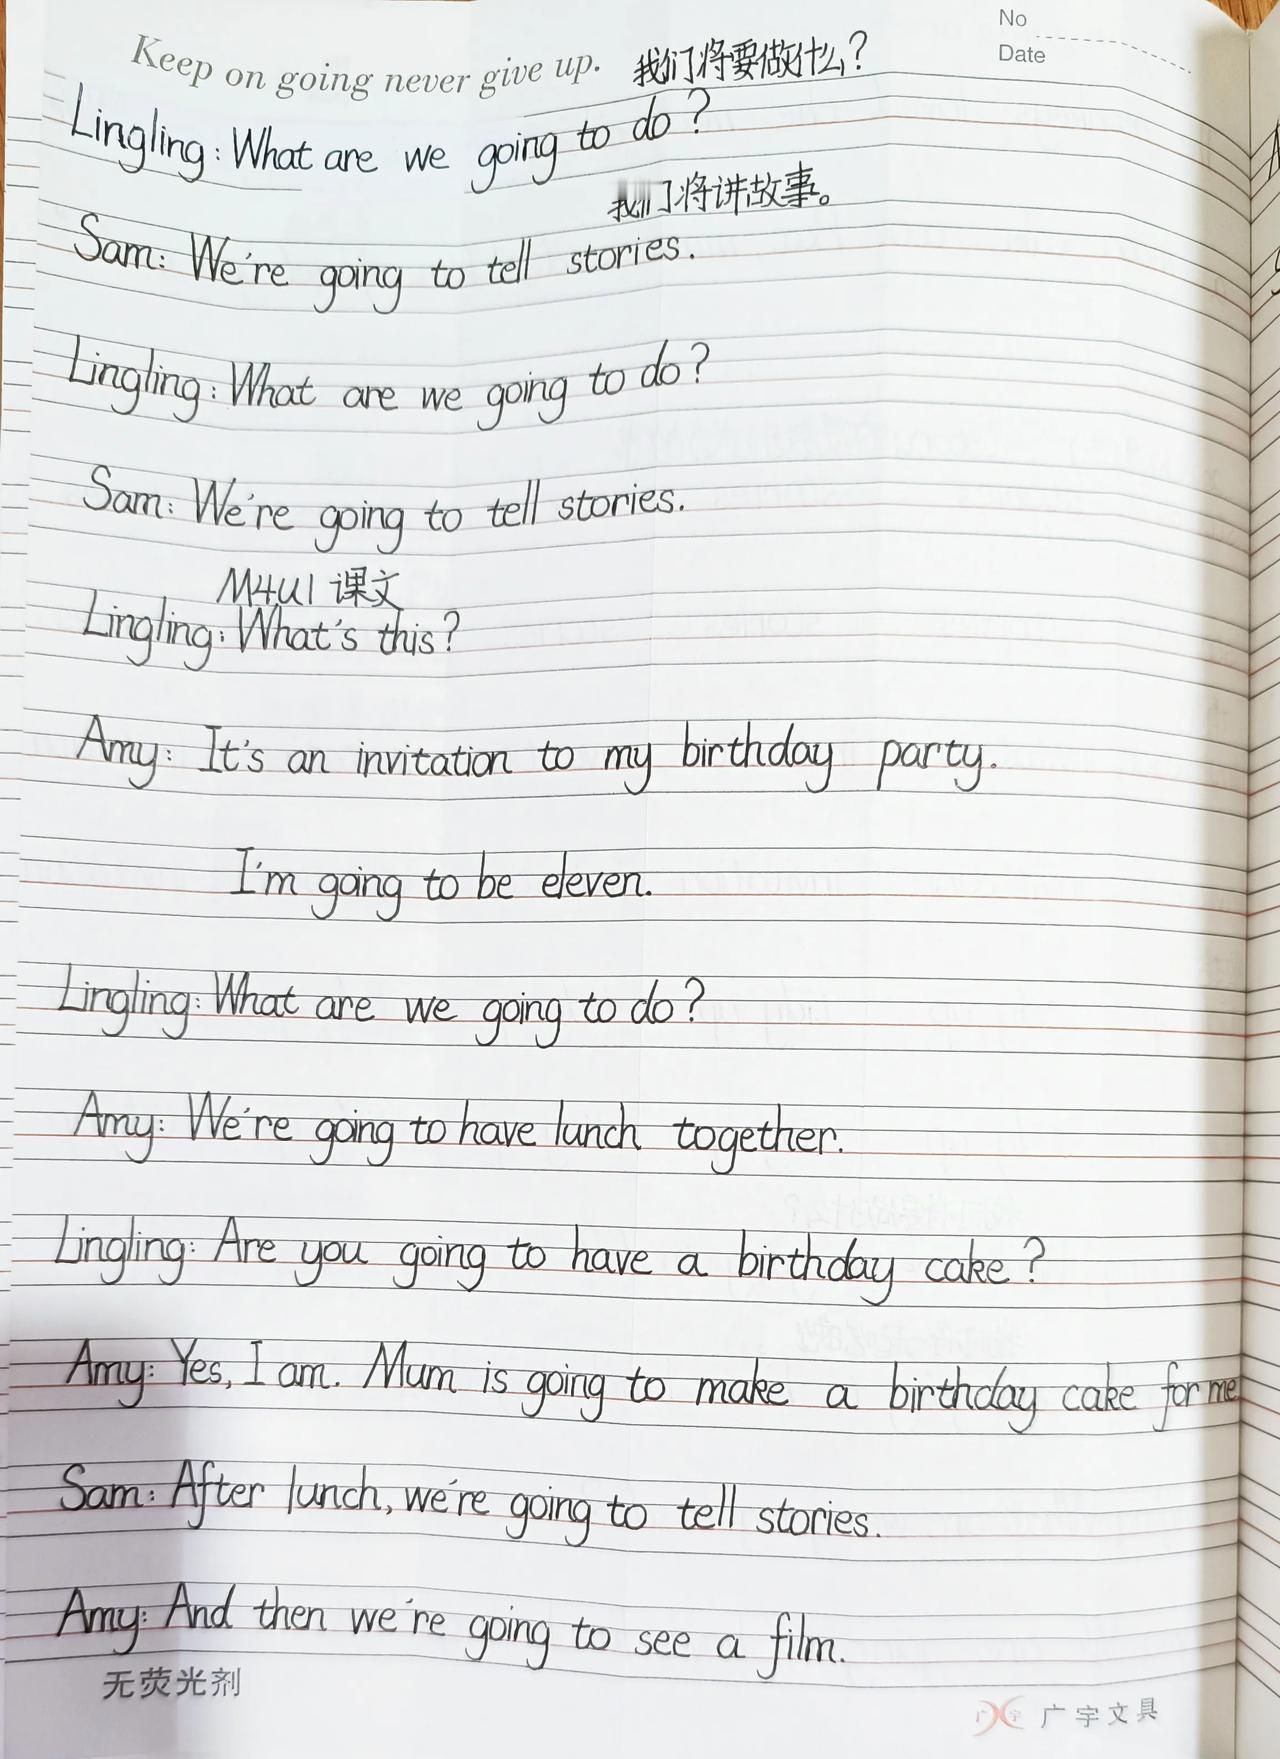 No
Date
Keep on going never give up.
我们将要做什么?
Lingling: What are we going to do?
我们将讲故事。
Sam: We're going to tell stories.
Lingling: What are we going to do?
Sam: We're going to tell stories.
M4U1 课文
Lingling: What's this?
Amy: It's an invitation to my birthday party.
I'm going to be eleven.
Lingling: What are we going to do?
Amy: We're going to have lunch together.
Lingling: Are you going to have a birthday cake?
Amy: Yes, I am. Mum is going to make a birthday cake for me
Sam: After lunch, we're going to tell stories.
Amy: And then we're going to see a film.
无荧光剂
广宇文具